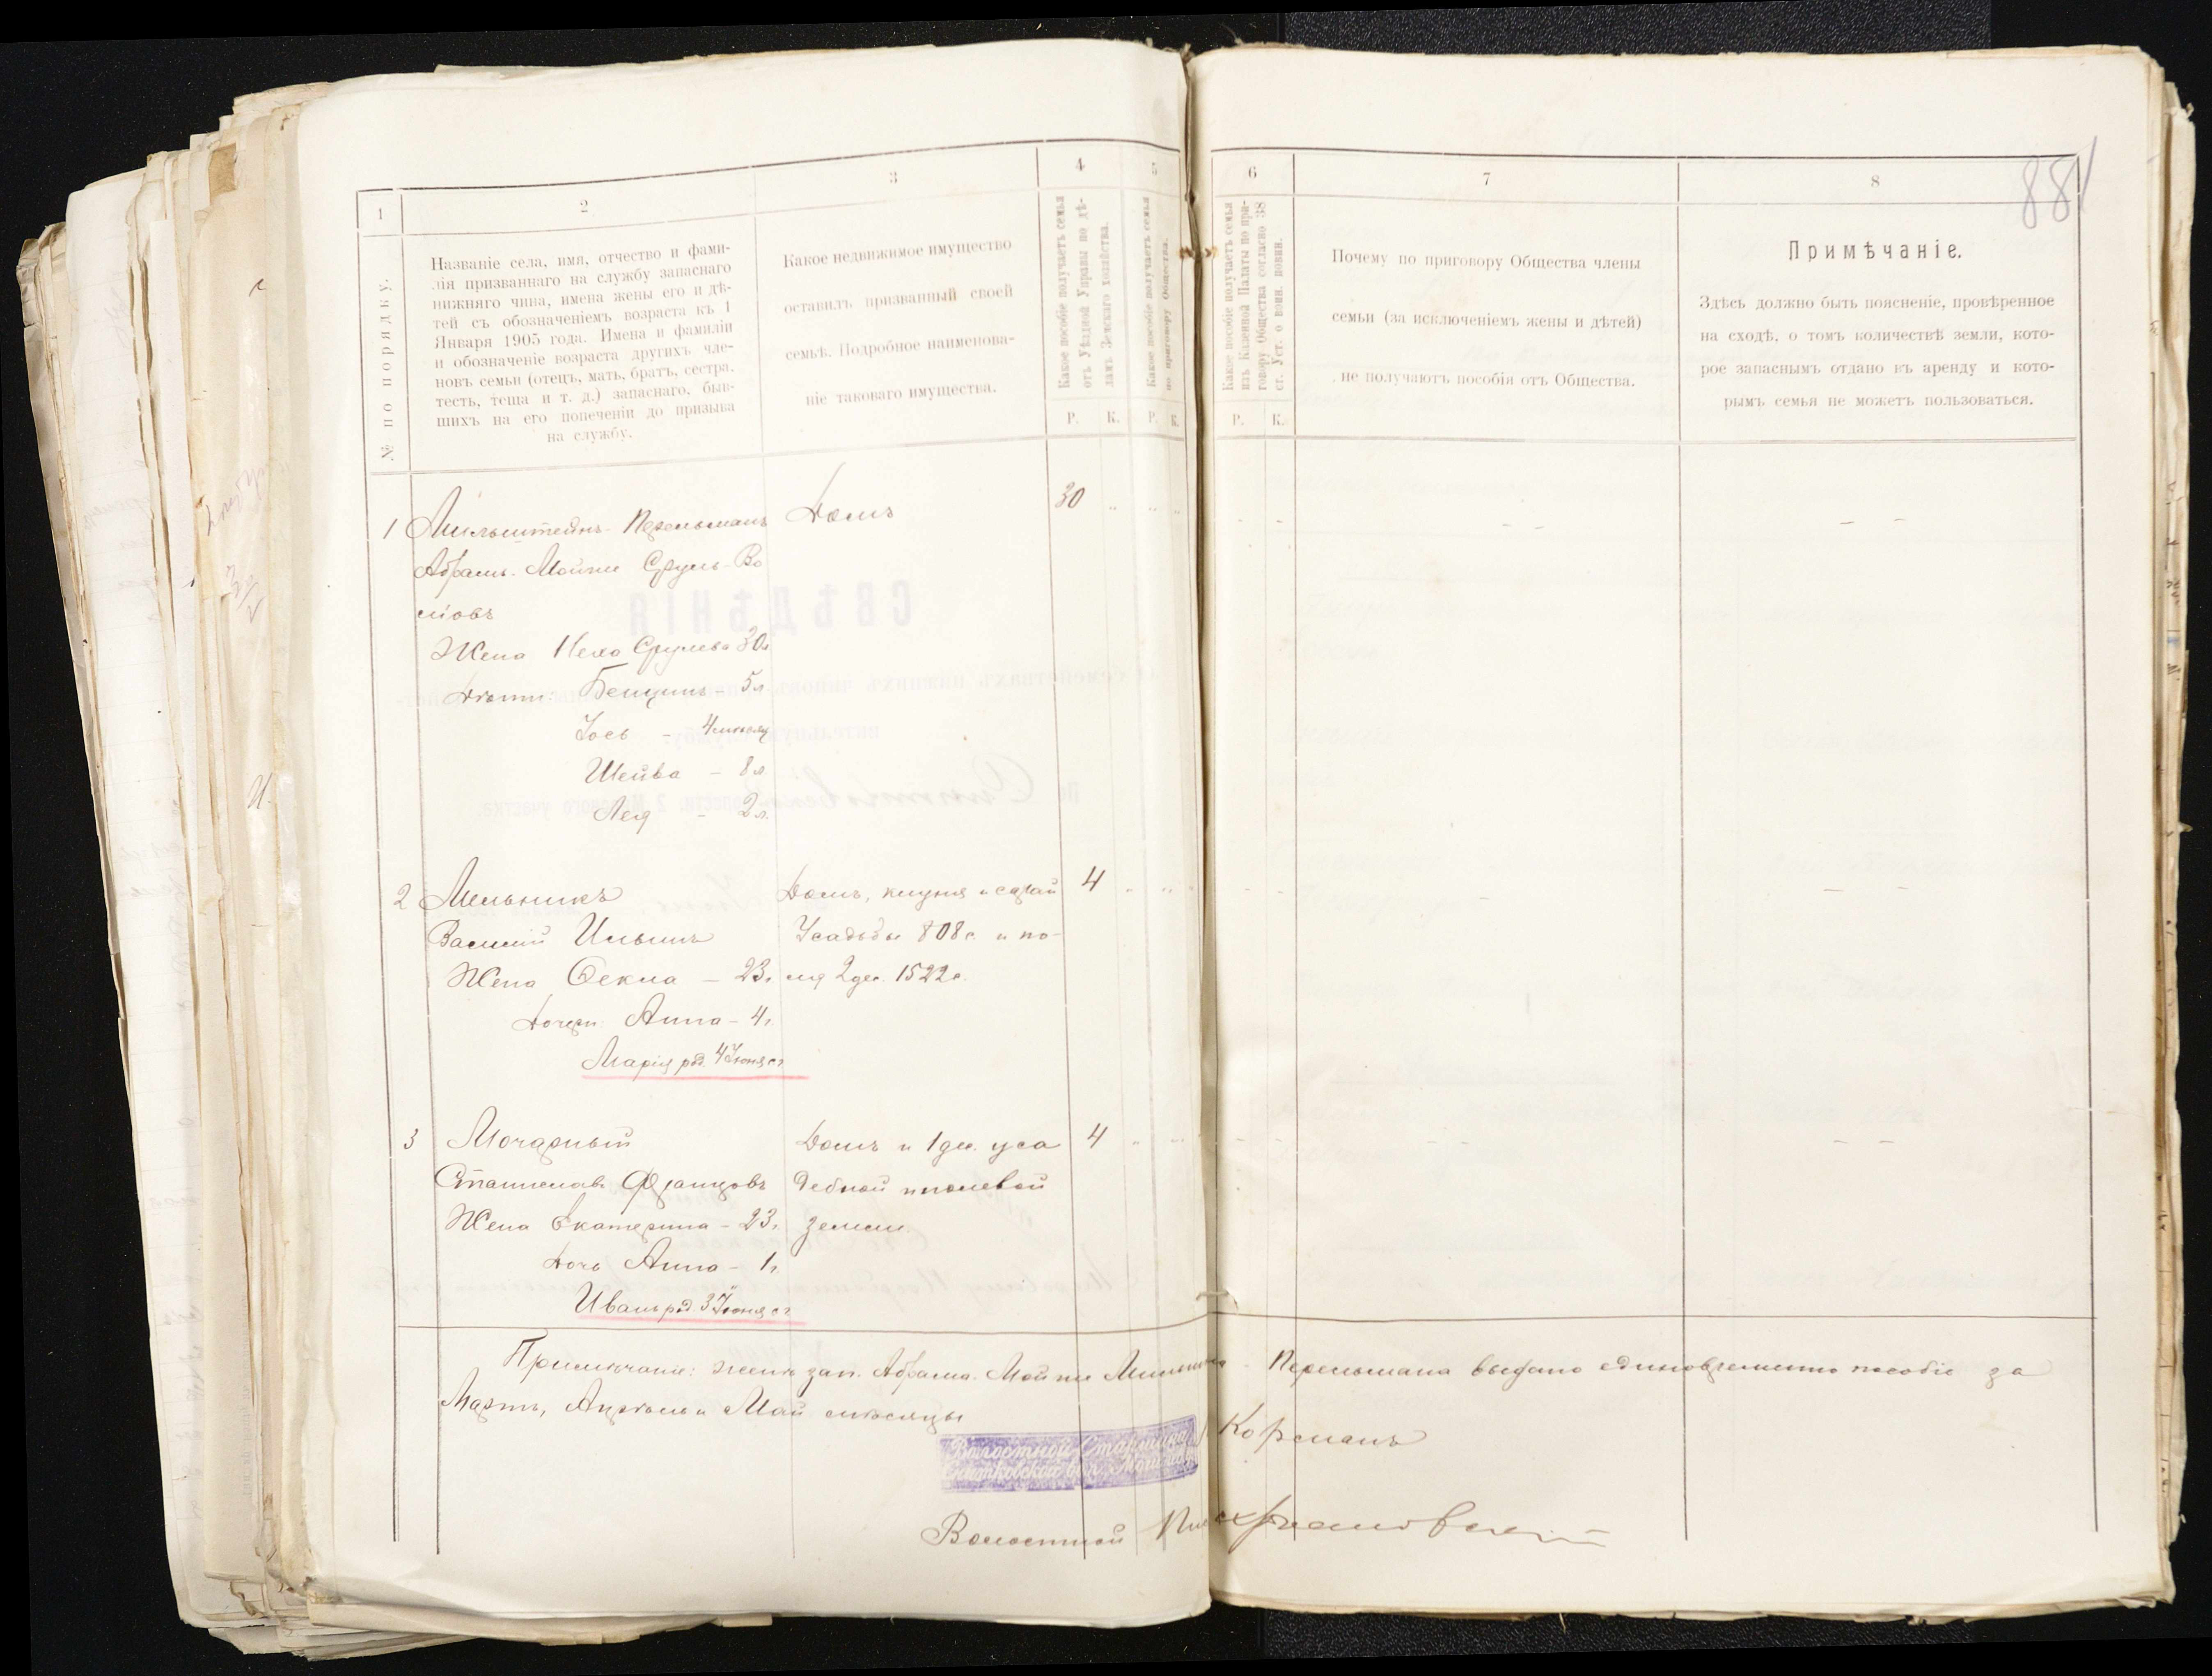 881
1
2
3
4
5
6
7
8
№ по порядку.
Названіе села, имя, отчество и фами-
лія призваннаго на службу запаснаго
нижняго чина, имена жены его и дѣ-
тей съ обозначеніемъ возраста къ 1
Января 1905 года. Имена и фамиліи
и обозначеніе возраста другихъ чле-
новъ семьи (отецъ, мать, братъ, сестра,
тесть, теща и т. д.) запаснаго, быв-
шихъ на его попеченіи до призыва
на службу.
Какое недвижимое имущество
оставилъ призванный своей
семьѣ. Подробное наименова-
ніе таковаго имущества.
Какое пособіе получаетъ семья
отъ Уѣздной Управы по дѣ-
ламъ Земскаго хозяйства.
Р. К.
Какое пособіе получаетъ семья
по приговору Общества.
Р. К.
Какое пособіе получаетъ семья
изъ Казенной Палаты по при-
говору Общества согласно 38
ст. Уст. о воин. повин.
Р. К.
Почему по приговору Общества члены
семьи (за исключеніемъ жены и дѣтей)
не получаютъ пособія отъ Общества.
Примѣчаніе.
Здѣсь должно быть поясненіе, провѣренное
на сходѣ, о томъ количествѣ земли, кото-
рое запаснымъ отдано къ аренду и кото-
рымъ семья не можетъ пользоваться.
1 Мильштейнъ-Перельманъ Домъ 30 „ „ „ - - - - - -
Абрамъ-Мойше Сруль-Во
лювъ
Жена Неха Срулева 30л
Дѣти: Бенцинъ - 5л.
Іось - 4 мѣсяц
Шейва - 8л.
Лея - 2л.
2 Мельникъ Домъ, клуня и сарай 4 „ „ „ - - - - -
Василій Ильинъ Усадьбы 808 с. и по-
Жена Ѳекла - 23г. ля 2 дес. 1522 с.
Дочери: Анна - 4г.
Марія род. 4 Іюня с.г.
3 Мочарный Домъ и 1 дес. уса 4 „ „ - - - - - -
Станиславъ Францовъ дебной и полевой
Жена Екатерина - 23г. земли.
Дочь Анна - 1г.
Иванъ род. 3 Іюня с.г.
Примѣчаніе: женѣ зап. Абрама-Мойше - Перельмана выдано единовременно пособіе за
Мартъ, Апрѣль и Май мѣсяцы
Волостной Старшина Корманъ
Снитковской вол.
Волостной